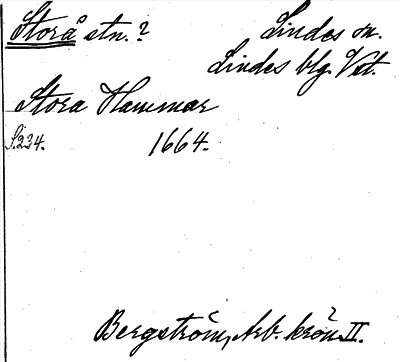 Storå stn.? Lindes sn.
Lindes blg. Vst.
Stora Hammar
S. 234. 1664.
Bergström, Arb. krön. II.